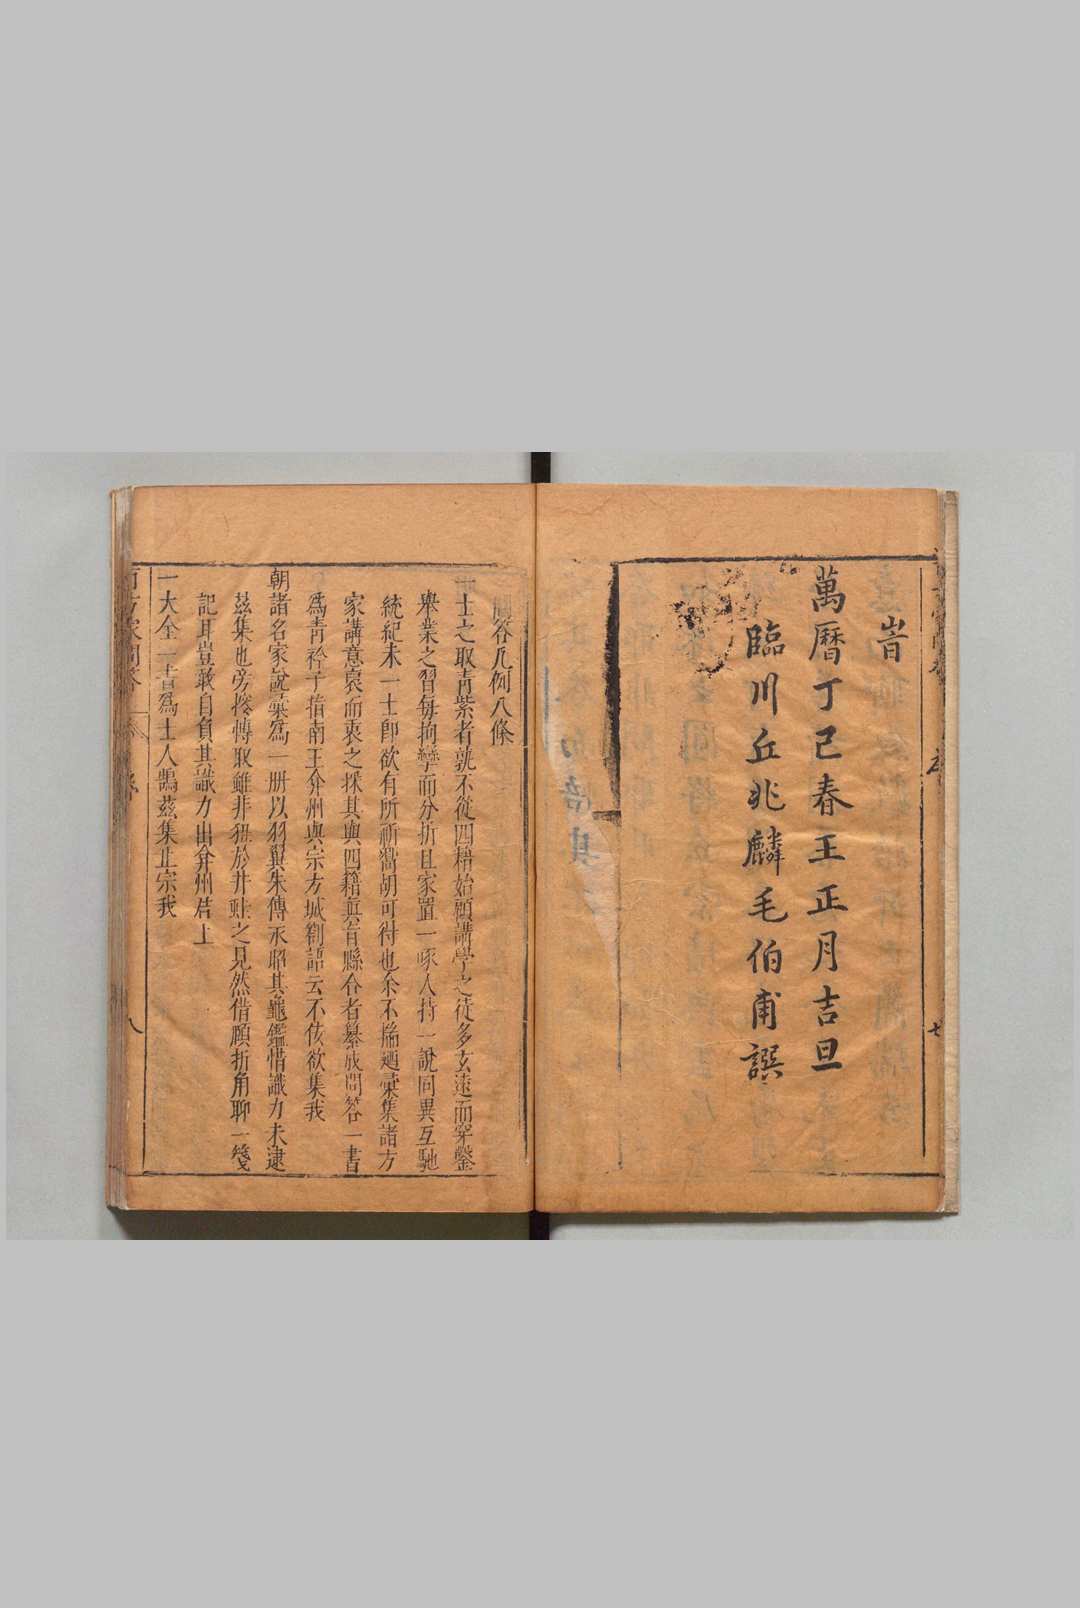 旹
萬曆丁巳春王正月吉旦
臨川丘兆麟毛伯甫譔
七
問答凡例八條
一士之取青紫者孰不從四梧始顧講學之徒多玄遠而穿鑿
舉業之習每拘攣而分折且家置一喙人持一說同異互馳
統紀未一士卽欲有所祈嚮胡可得也余不揣廼彙集諸方
家講意裒而衷之採其與四籍眞旨縣合者纂成問答一書
爲靑衿子指南王弇州與宗方城劄語云不佞欲集我
朝諸名家說彙爲一册以羽翼朱傳永昭其龜鑑惜識力未逮
茲集也旁搜轉取雖非狃於井鮭之見然借願折角聊一箋
記耳豈敢自負其識力出弇州君上
一大全一書爲士人鵠茲集止宗我
八